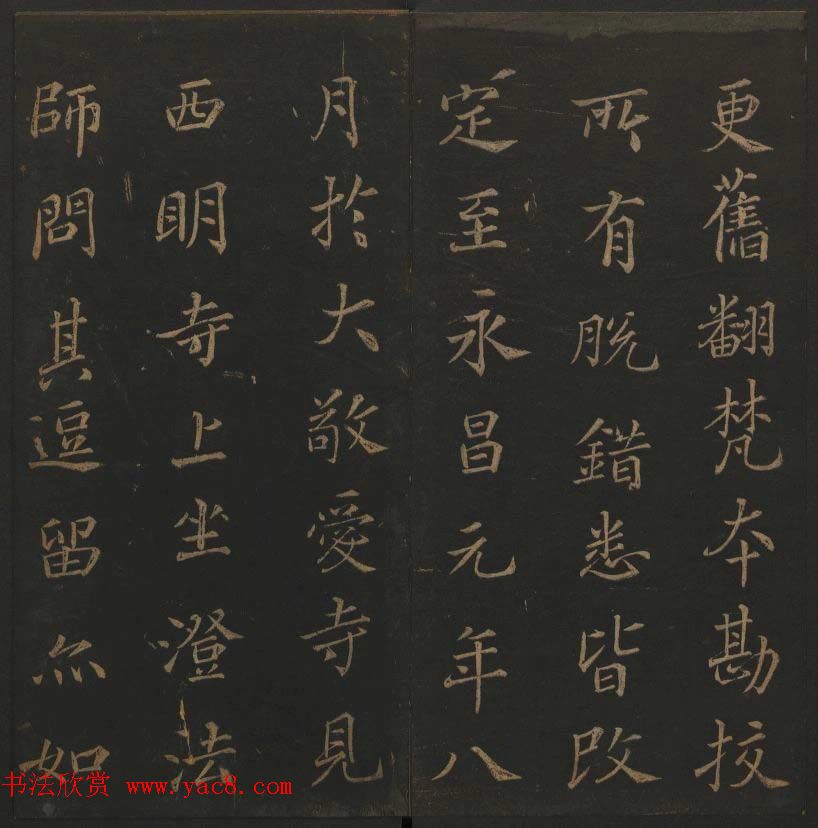 更舊翻梵夲勘挍
所有脫錯悉皆改
定至永昌元年八
月於大敬愛寺見
西明寺上坐澄法
師問其逗留亦如
书法欣赏 www.yac8.com